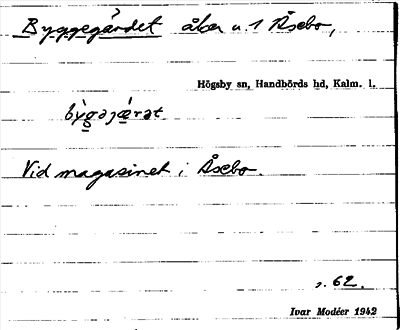 Byggegärdet åker u. 1 Åsebo,
Högsby sn, Handbörds hd, Kalm. l.
Vid magasinet i Åsebo.
s. 62.
Ivar Modéer 1942